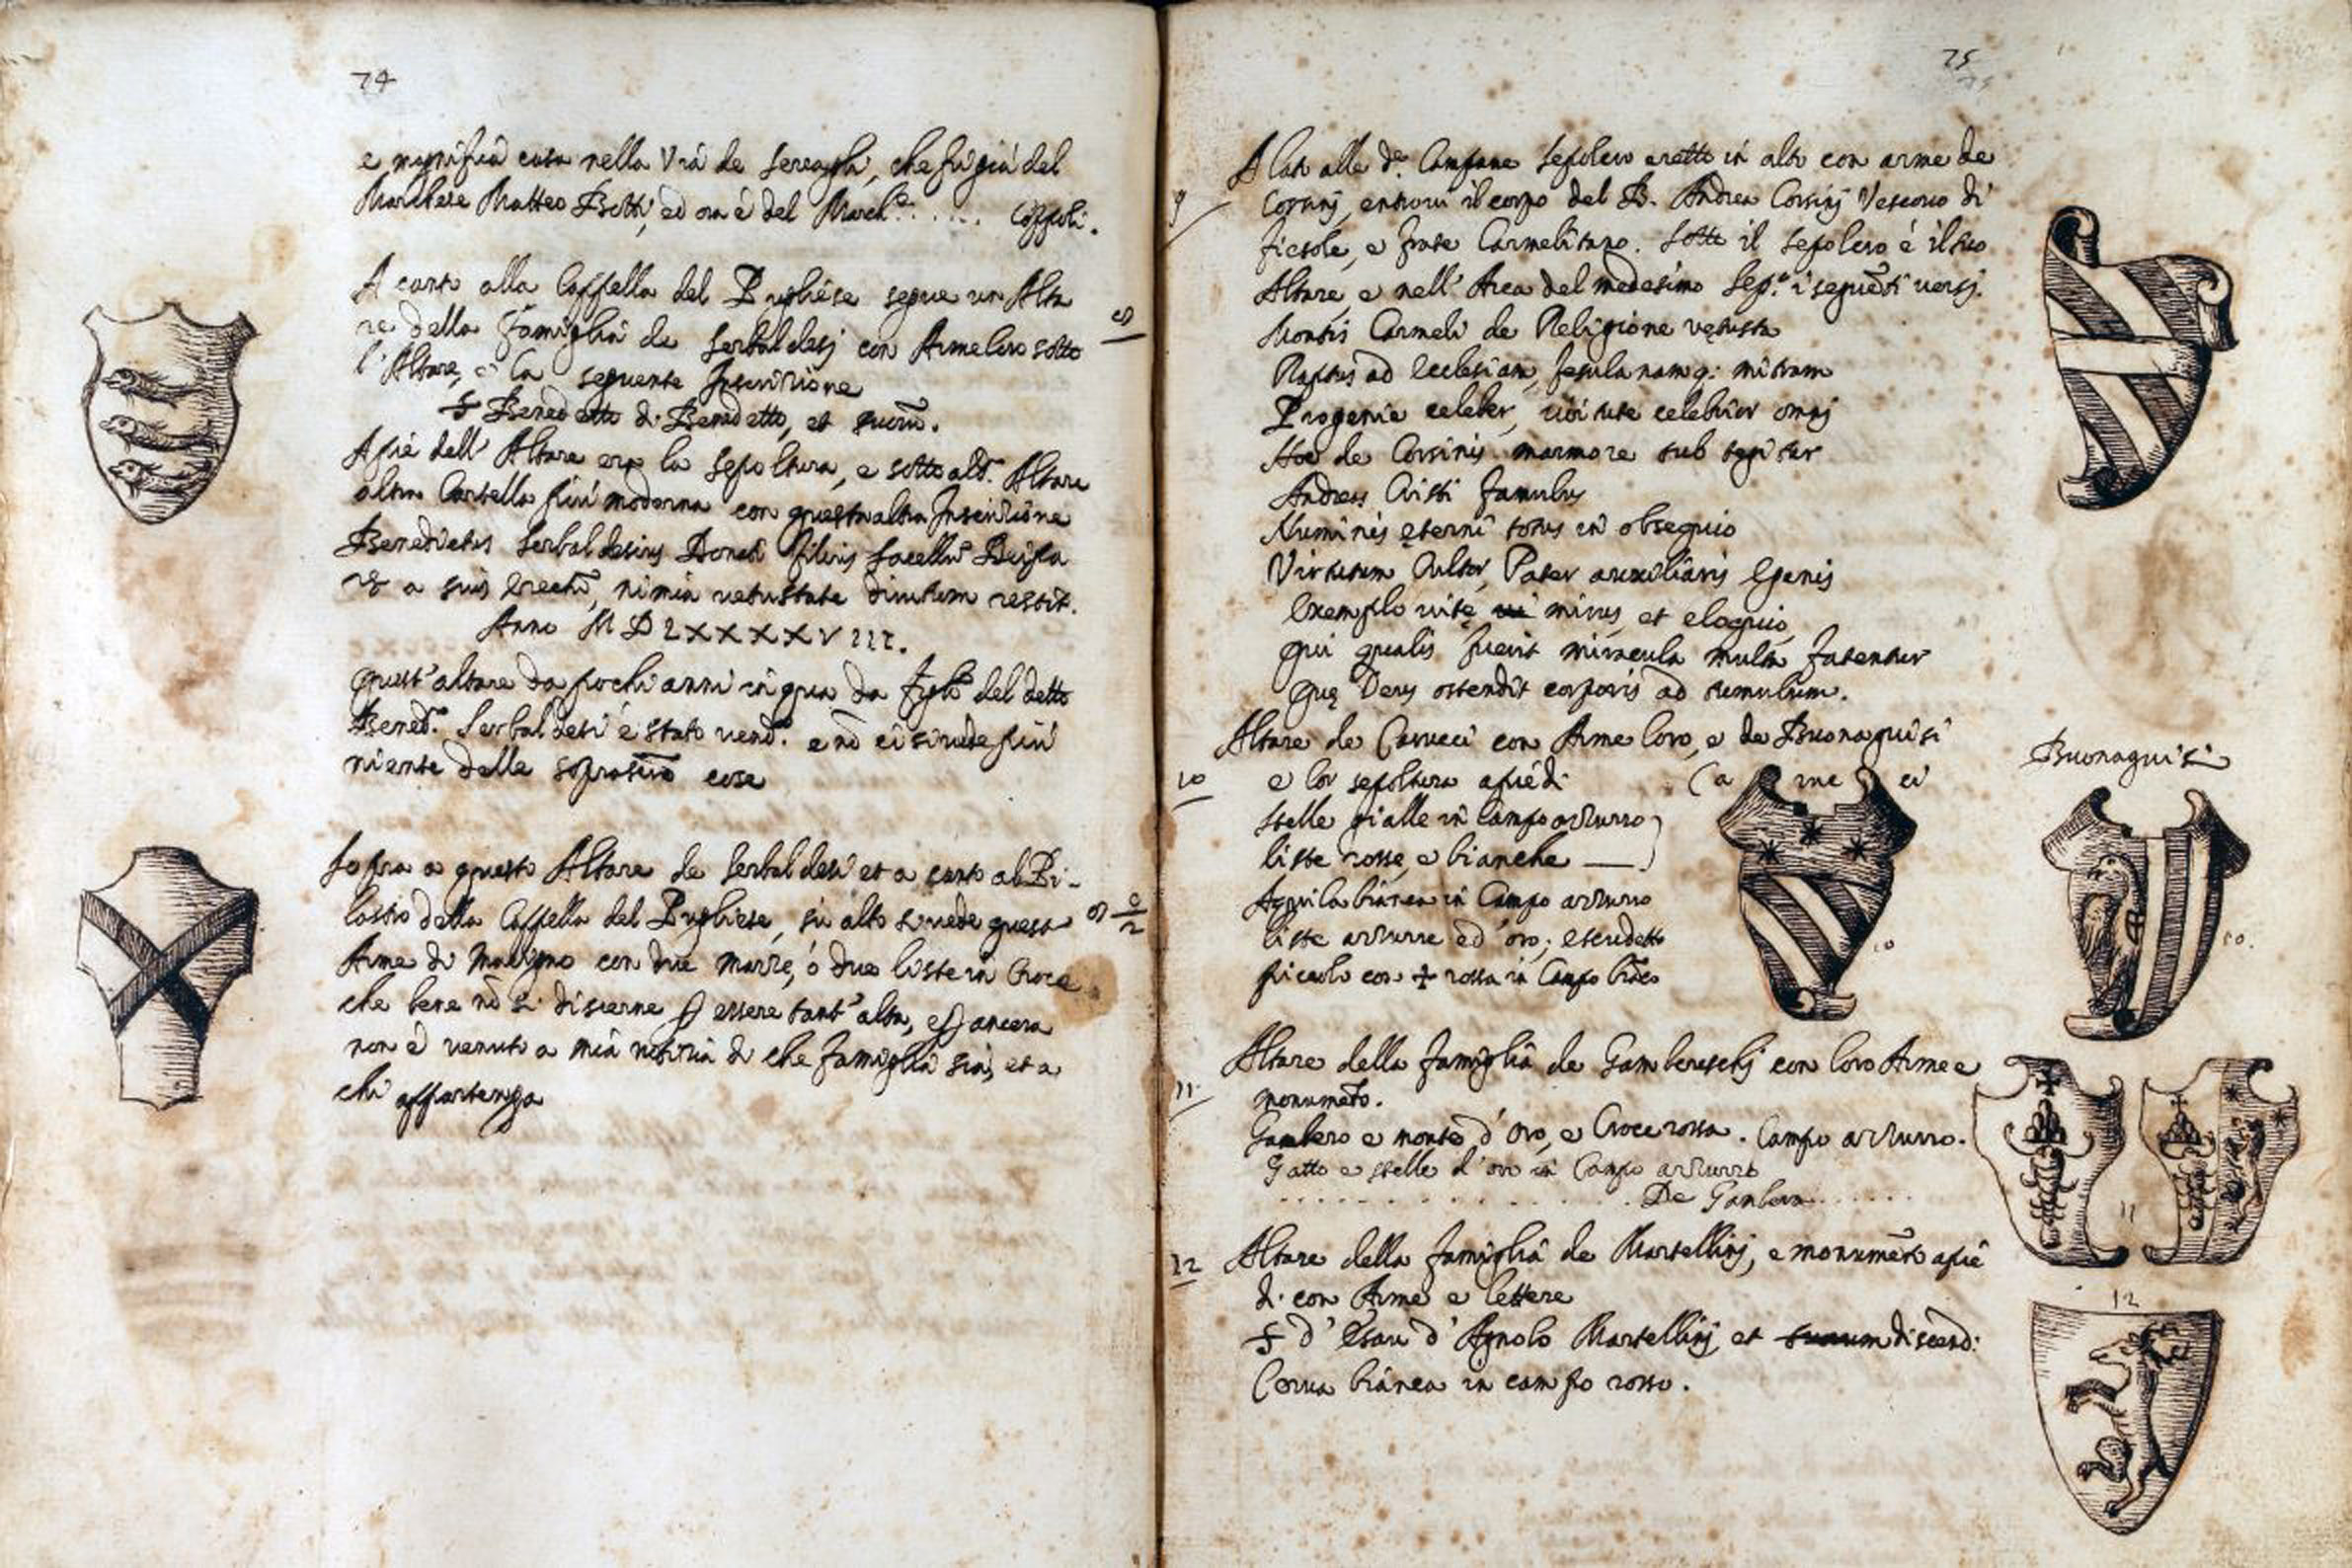 74
e magnifica casa nella Via de Serragli, che fù già del
Marchese Matteo Botti, ed ora è del March.e ...... Coppoli.
A canto alla Cappella del Pugliese segue un Alta
re della Famiglia de Serbaldesj con Arme loro sotto
8
l'Altare, e la seguente Inscrizione
S Benedetto di Benedetto, et suorũ.
A piè dell' Altare era la sepoltura, e sotto Altare
altra Cartella più moderna con quest'altra Inscrizione
Benedictus Serbaldesius Donati filius sacellũ
a suis erectũ, nimia vetustate dirutum restit.
Anno M D L X X X X V I I I.
Quest'altare da pochi anni in qua da figli del detto
Bened.o Serbaldesi è stato vend.o e nõ ci si vede più
niente delle cose
Sopra a questo Altare de Serbaldesi et a canto al Pi-
lastro della Cappella del Pugliese, sù alto si vede questa
Arme di Macigno con due marre, ò due liste in Croce
che bene nõ si discerne p essere tant'alta, e p ancora
non è venuto a mia notizia di che famiglia sia, et a
chi appartenga
75
A lato alle d.e Campane sepolcro eretto in alto con arme de
9
Corsinj, entrovi il corpo del B. Andrea Corsinj Vescovo di
fiesole, e frate Carmelitano. Sotto il sepolcro è il suo
Altare, e nell' Arca del medesimo Sep.o i seguẽti versj.
Montis Carmeli de Religione vetusta
Raptus ad Ecclesiam, fesulanamq: mitram
Progenie celeber, virtute celebrior omnj
Hoc de Corsinis marmore sub tegitur
Andreas Cristi famulus
Numinis ęterni totus in obsequio
Virtutum Cultor, Pater auxiliaris Egenis
Exemplo vitę mirus, et eloquio
Qui qualis fuerit miracula multa fatentur
Quę Deus ostendit corporis ad tumulum.
Altare de Carucci con Arme loro, e de Buonaguisi
Buonaguisi
10
e lor sepoltura a piedi
Ca rne ci
stelle gialle in Campo azzurro
liste rosse, e bianche
Aquila bianca in Campo azzurro
liste azzurre ed'oro; e scudetto
10
10.
piccolo con + rossa in Campo biãco
Altare della famiglia de Gambereschj con loro Arme e
11
monumẽto.
Gambero e monte d'oro, e Croce rossa. Campo azzurro.
Gatto e stelle d'oro in Campo azzurro
De Gambera
11
12
Altare della famiglia de Martellinj, e monumẽto a piè
di con Arme e lettere
12
S d'Esau d'Agnolo Martellinj et suorum discend:
Cerva bianca in campo rosso.